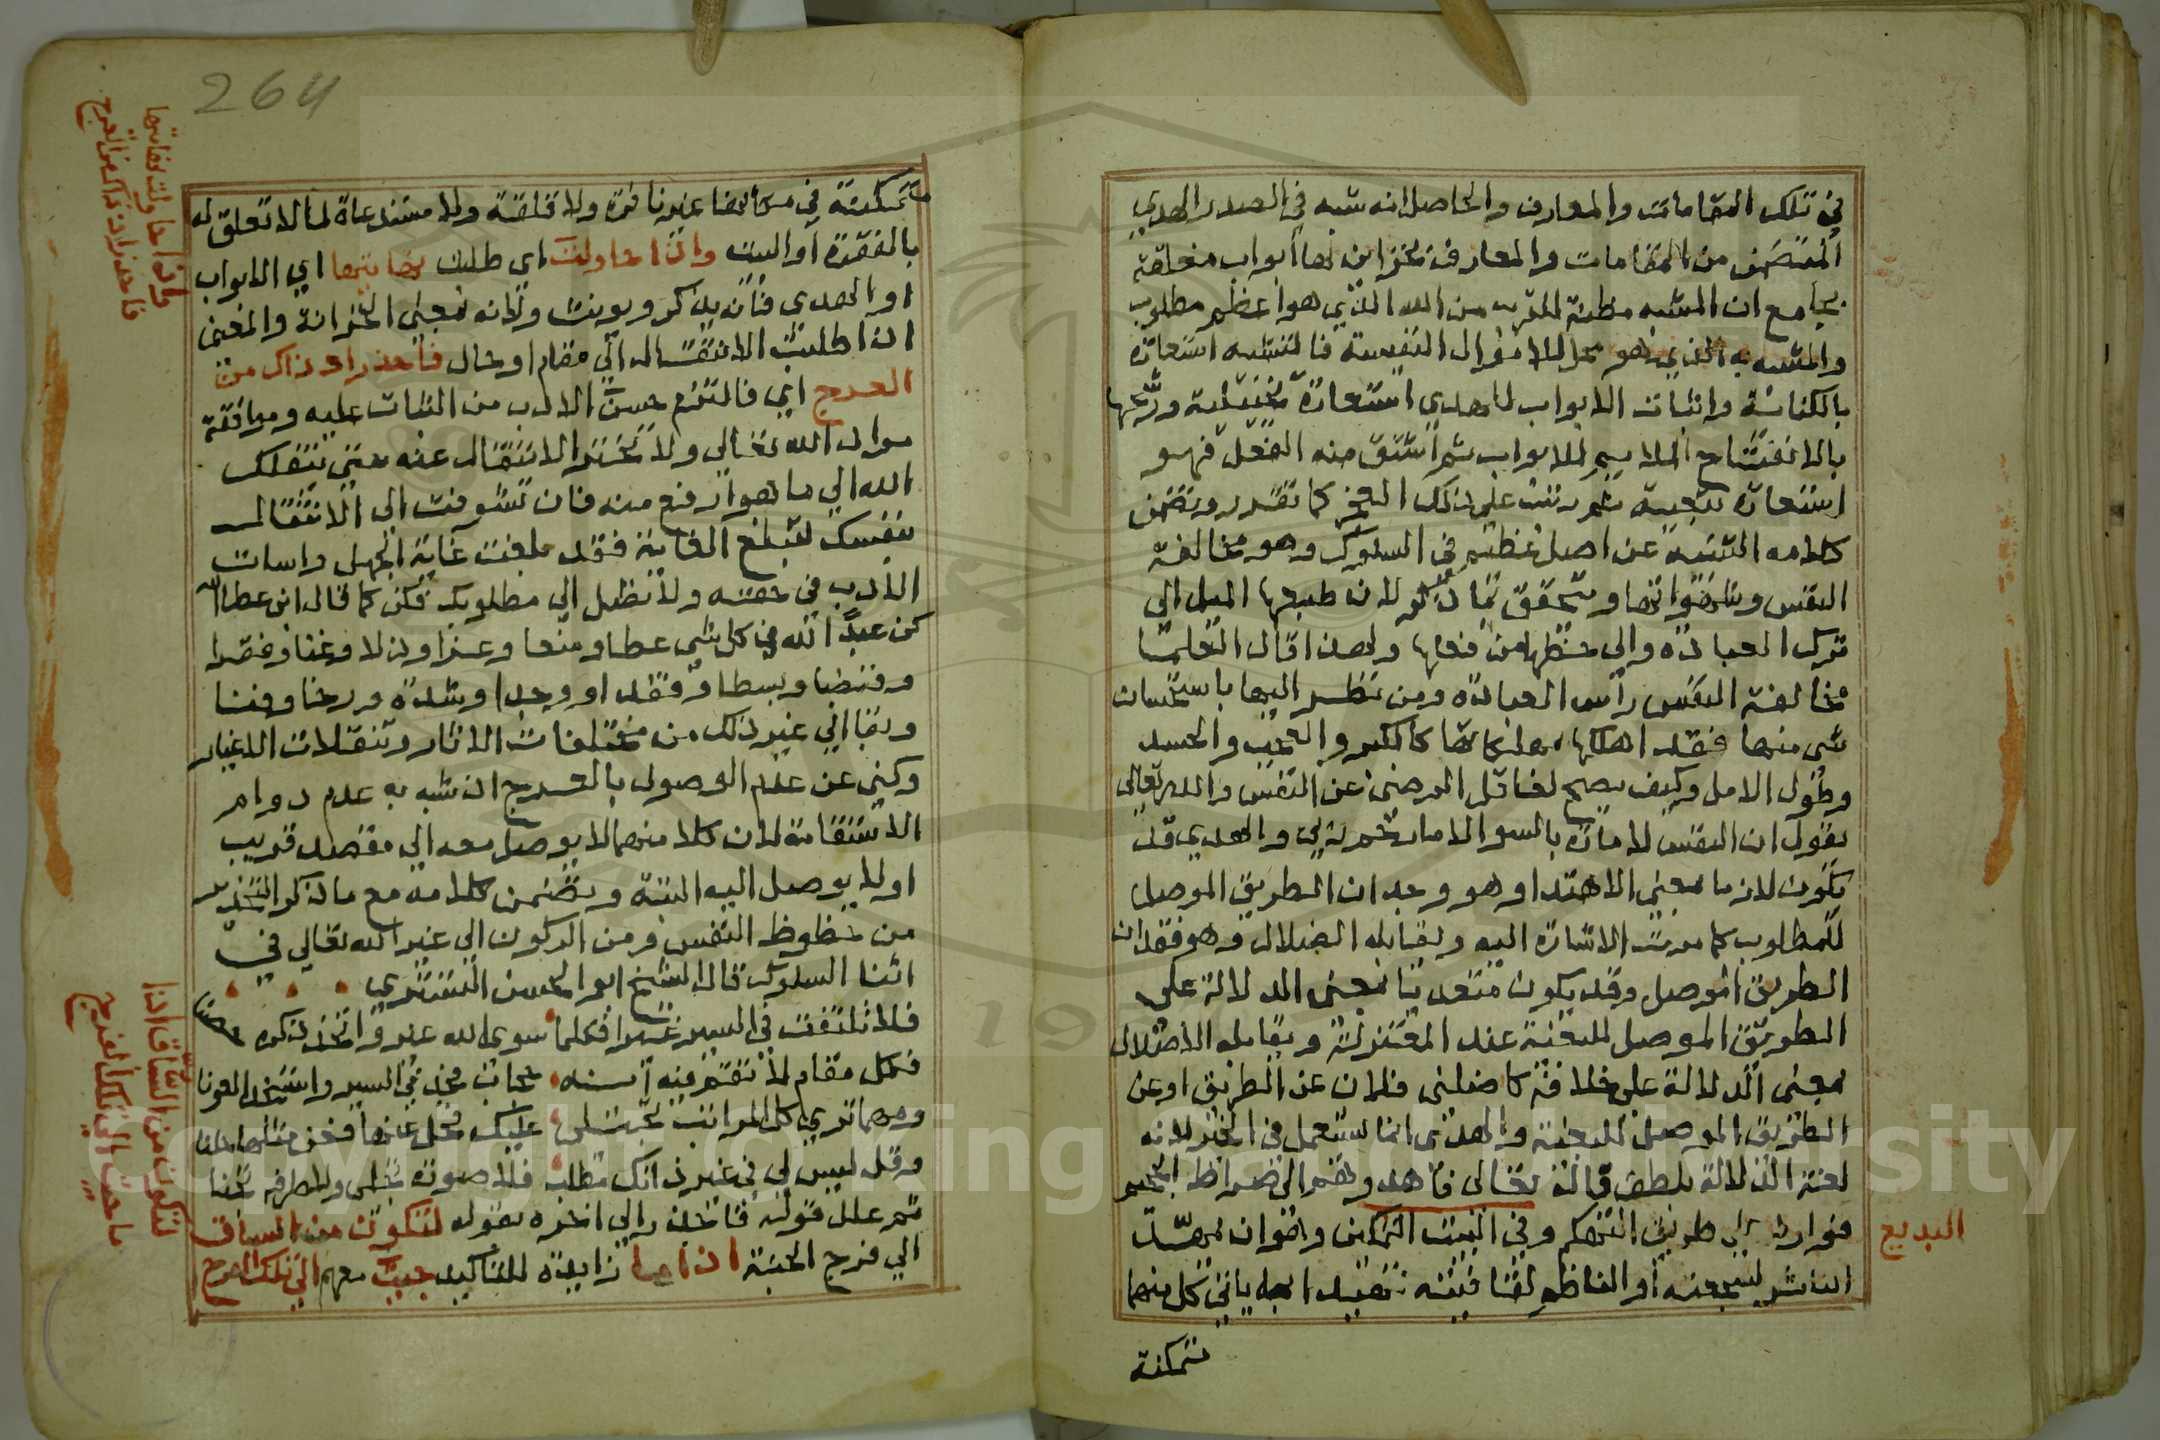 في تلك المقامات والمعارف والحاصل انه شبه في الصدر الهدي
المتضمن من المقامات والمعارف بخزاين لها أبواب مغلقة
بجامع ان المشبه مظنة القرب من الله الذي هو اعظم مطلوب
والمشبه به الذي هو محل للاموال النفيسة فالتشبيه استعارة
بالكناية واثبات الابواب للهدي استعارة تخييلية ورشحها
بالانفتاح الملايم للابواب ثم اشتق منه الفعل فهو
استعارة تبعية ثم رتب على ذلك العجز كما تقدر وتضمن
كلامه التنبيه عن اصل عظيم في السلوك وهو مخالفة
النفس وشهواتها و بما ذكر لان طبعها الميل الي
ترك العبادة والي حظها من فعلها ولهذا قال العلما
مخالفة النفس رأس العبادة ومن نظر اليها باستحسان
شي منها فقد اهلكها كالكبر والعجب والحسد
وطول الامل وكيف يصح لعاقل الرضى عن النفس والله تعالى
يقول ان النفس لامارة بالسوء الا ما رحم ربي والهدي قد
يكون لازما بمعني الاهتدا وهو وجدان الطريق الموصل
للمطلوب كما مرت الاشارة اليه ويقابله الضلال وهو فقدان
الطريق الموصل وقد يكون متعديا بمعنى الدلالة على
الطريق الموصل للبغية عند المعتزلة ويقابله الاضلال
بمعنى الدلالة على خلافه كاضلني فلان عن الطريق او عن
الطريق الموصل للبغية والهدى انما يستعمل في الخير لانه
لغة الدلالة بلطف قوله تعالى فاهدوهم الى صراط الجحيم
فوارد على طريق التهكم وفي البيت

البديع
متمكنة
264
وان حاولت نهايتها
فاحذر اذ ذاك من العرج
متمكنة في غير نافرة ولا قلقة ولا مستدعاة لما لا تعلق له
بالفقرة أو البيت وان حاولت اي طلبت نهايتها اي الابواب
او الهدى فانه يذكر ويونث ولانه بمعنى الخزانة والمعنى
اذا طلبت الانتقال الي مقام او حال فاحذر اذ ذاك من
العرج اي فالتزم حسن الادب من الثبات عليه وموافقة
مراد الله تعالي ولا تختر الانتقال عنه حتى ينقلك
الله الي ما هو ارفع منه فان تشوفت الى الانتقال
بنفسك لتبلغ الغاية فقد بلغت غاية الجهل واسات
الادب في حقه ولا تصل الي مطلوبك فكن كما قال ابن عطاء الله
كن عبد الله في كل شي عطا ومنعا وعزا وذلا وغنا وفقرا
وقبضا وبسطا وفقدا او وجدا وشدة ورخا وفنا
وبقا الي غير ذلك من مختلفات الاثار وتنقلات الاغيار
وكني عن عدم الوصول بالعرج ان شبه به عدم دوام
الاستقامة لان كلا منهما لا يوصل معه الي مقصد قريب
اولا يوصل اليه البتة وتضمن كلامه مع ما ذكر التحذير
من حظوظ النفس ومن الركون الي غير الله تعالي في
اثنا السلوك قال الشيخ ابو الحسن الششتري
فلا تلتفت في السير غيرا فكلما سوى الله غير فاتخذ ذكره حصنا
فكل مقام لا تقم فيه انه حجاب فجد في السير واستنجد العونا
ومهما تري كل المراتب تجتلى عليك فحل عنها فعن مثلها حلنا
وقل ليس لي في غير ذاتك مطلب فلا صورة تجلى ولا طرفة تجنا
ثم علل قوله فاحذر الي اخره بقوله لتكون من السباق
الي فرج الجنة اذا ما زايدة للتاكيد جيت معهم الي تلك الفرج
لتكون من السباق اذا
ما جيت الي تلك الفرج